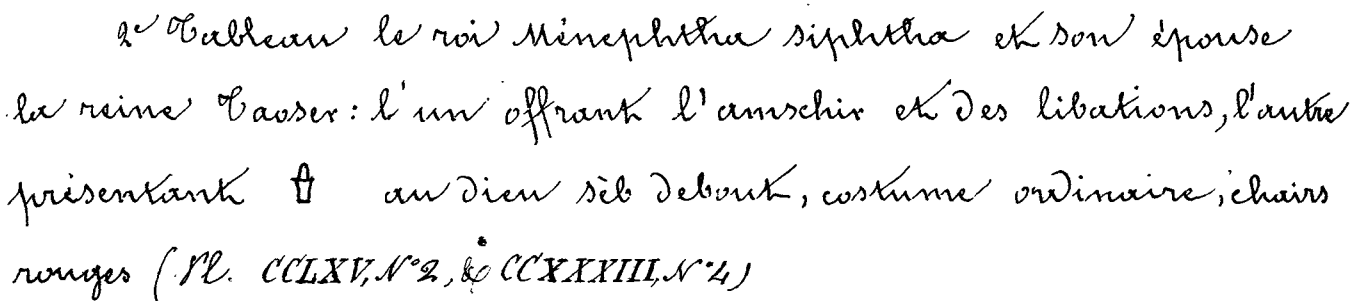 2e Tableau le roi Ménephtha siphtha et son épouse
la reine Taoser: l'un offrant l'amschir et des libations, l'autre
présentant au dieu sèb debout, costume ordinaire, chairs
rouges (Pl. CCLXV, N° 2, & CCXXXIII, N° 4)